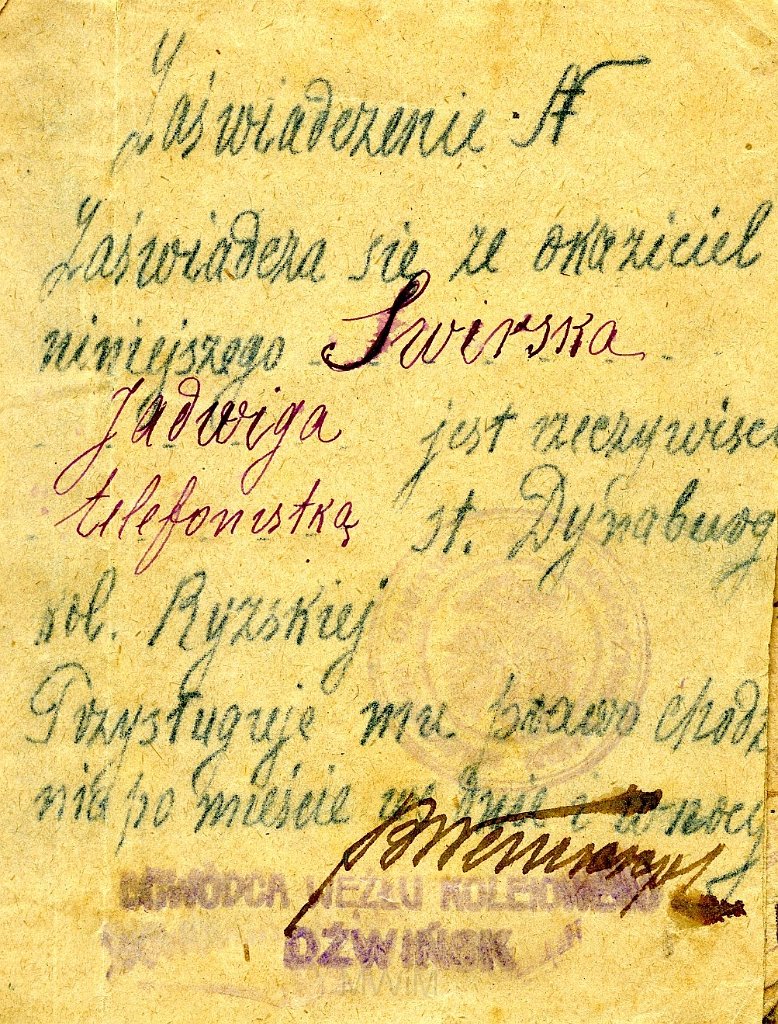 Zaświadczenie N
Zaświadcza się ze okaziciel
niniejszego Swirska
Jadwiga jest rzeczywisc
telefonistką st. Dynaburg
kol. Ryzskiej
Przysługuje mu prawo chodz
nia po mieście we dnie i w nocy
DOWÓDCA WĘZŁU KOLEJOWEGO
DŹWIŃSK
MWIM